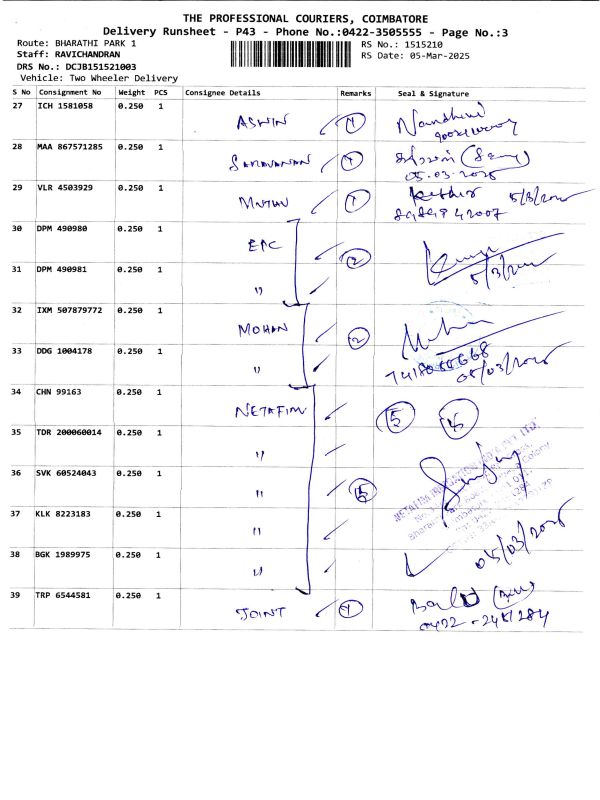 THE PROFESSIONAL COURIERS, COIMBATORE
Delivery Runsheet - P43 - Phone No.:0422-3505555 - Page No.:3
Route: BHARATHI PARK 1
RS No.: 1515210
Staff: RAVICHANDRAN
RS Date: 05-Mar-2025
DRS No.: DCJB151521003
Vehicle: Two Wheeler Delivery
S No Consignment No Weight PCS Consignee Details Remarks Seal & Signature
27 ICH 1581058 0.250 1 ASWIN 1
28 MAA 867571285 0.250 1 SARAVANAN 1
05.03.2025
29 VLR 4503929 0.250 1 1
30 DPM 490980 0.250 1 EPC 2
31 DPM 490981 0.250 1 "
32 IXM 507879772 0.250 1 MOHAN 2
33 DDG 1004178 0.250 1 "
05/03/2025
34 CHN 99163 0.250 1 NETAFIM 5
35 TDR 200060014 0.250 1 "
36 SVK 60524043 0.250 1 " 5
37 KLK 8223183 0.250 1 "
38 BGK 1989975 0.250 1 "
05/03/2025
39 TRP 6544581 0.250 1 JOINT 1